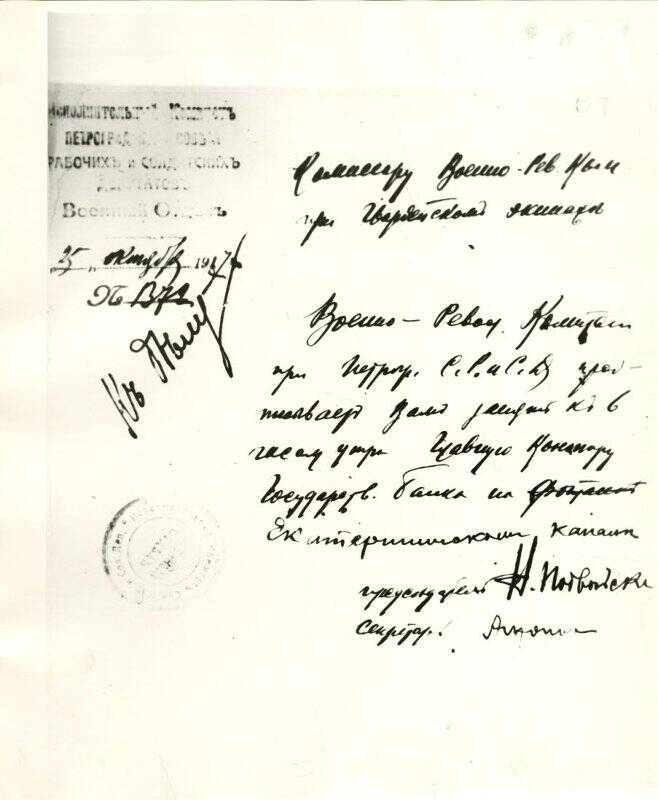 Исполнительный Комитетъ
Петроградск. Совѣта
Рабочихъ и Солдатскихъ
Депутатовъ
Военный Отдѣлъ
25 " октября 1917 г
№ 1372
Къ дѣлу
Комиссару Военно-Рев. Ком
при Гвардейскомъ экипажѣ
Военно-Револ. Комитет
при Петрогр. С.Р. и С.Д пред-
писывает Вамъ занять къ 6
часам утра Главную Контору
Государств. банка на Фонтанкѣ
Екатерининском каналѣ
председатель Н. Подвойски
Секретарь